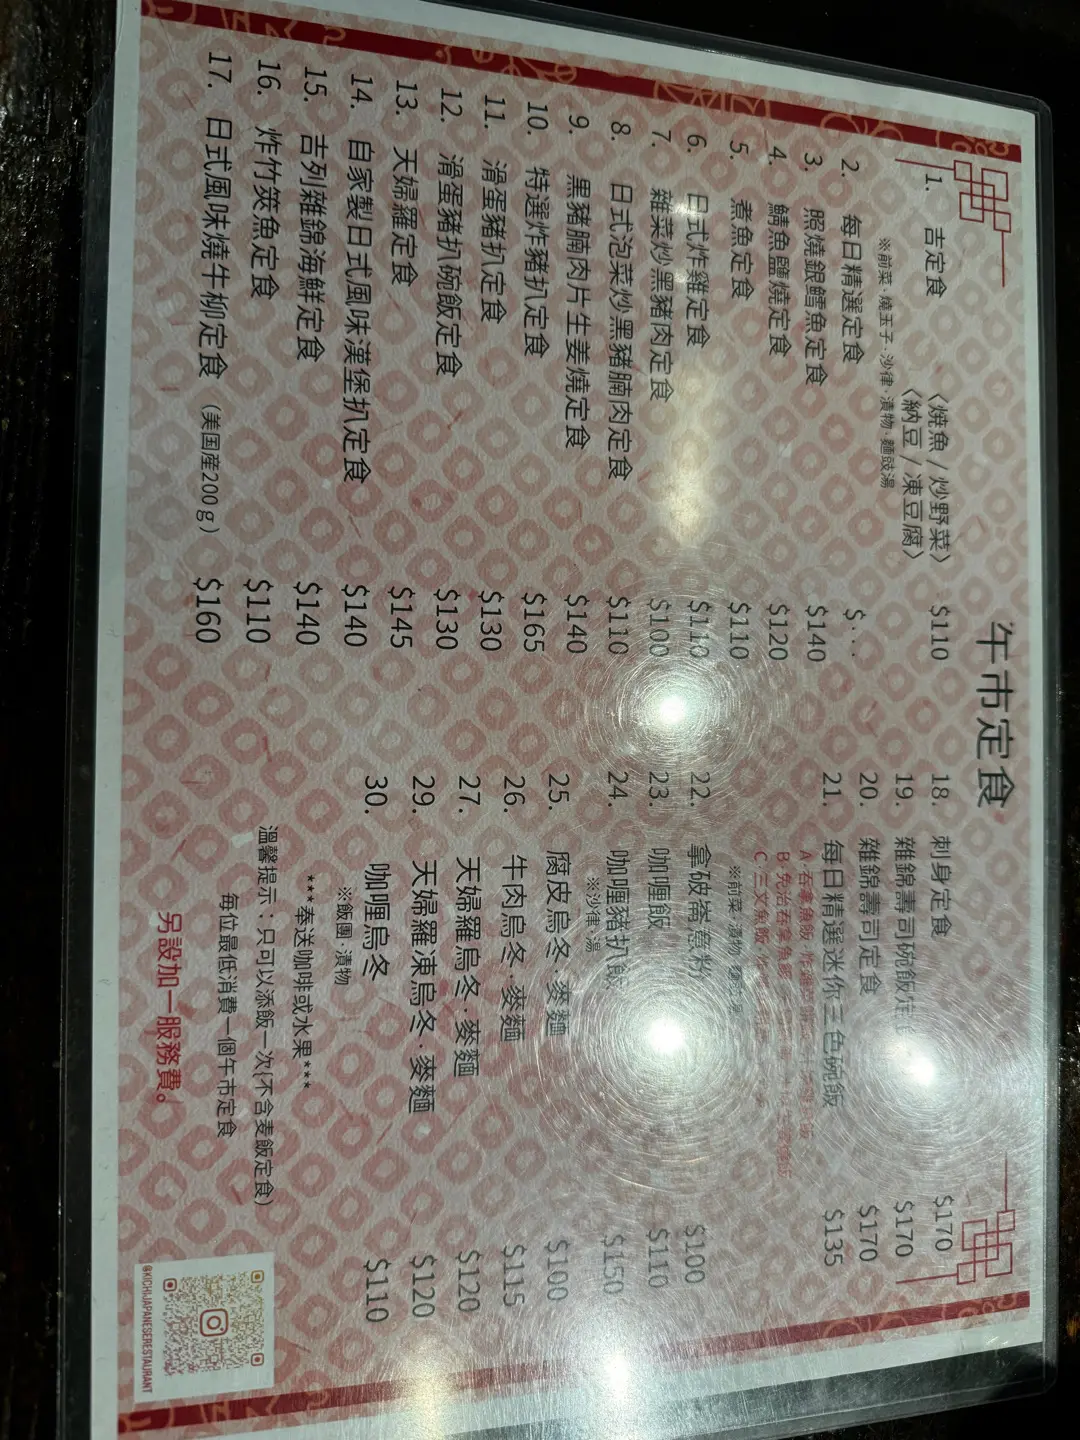 午市定食
1. 吉定食 〈燒魚 / 炒野菜〉 $110
〈納豆 / 凍豆腐〉
※前菜·燒玉子·沙律·漬物·麵豉湯
2. 每日精選定食 $
3. 照燒銀鱈魚定食 $140
4. 鯖魚鹽燒定食 $120
5. 煮魚定食 $110
6. 日式炸雞定食 $110
7. 雜菜炒黑豬肉定食 $100
8. 日式泡菜炒黑豬腩肉定食 $110
9. 黑豬腩肉片生姜燒定食 $140
10. 特選炸豬扒定食 $165
11. 滑蛋豬扒定食 $130
12. 滑蛋豬扒碗飯定食 $130
13. 天婦羅定食 $145
14. 自家製日式風味漢堡扒定食 $140
15. 吉列雜錦海鮮定食 $140
16. 炸竹筴魚定食 $110
17. 日式風味燒牛柳定食 (美国産200g) $160
18. 刺身定食 $170
19. 雜錦壽司碗飯定 $170
20. 雜錦壽司定食 $170
21. 每日精選迷你三色碗飯 $135
A 吞拿魚飯
B 免治吞拿魚
C 三文魚飯
※前菜·漬物
22. 拿破崙意粉 $100
23. 咖喱飯 $110
24. 咖喱豬扒飯 $150
※沙律·湯
25. 腐皮烏冬·麥麵 $100
26. 牛肉烏冬·麥麵 $115
27. 天婦羅烏冬·麥麵 $120
29. 天婦羅凍烏冬·麥麵 $120
30. 咖喱烏冬 $110
※飯團·漬物
***奉送咖啡或水果***
溫馨提示：只可以添飯一次(不含麦飯定食)
每位最低消費一個午市定食
另設加一服務費。
@KICHIJAPANESERESTAURANT